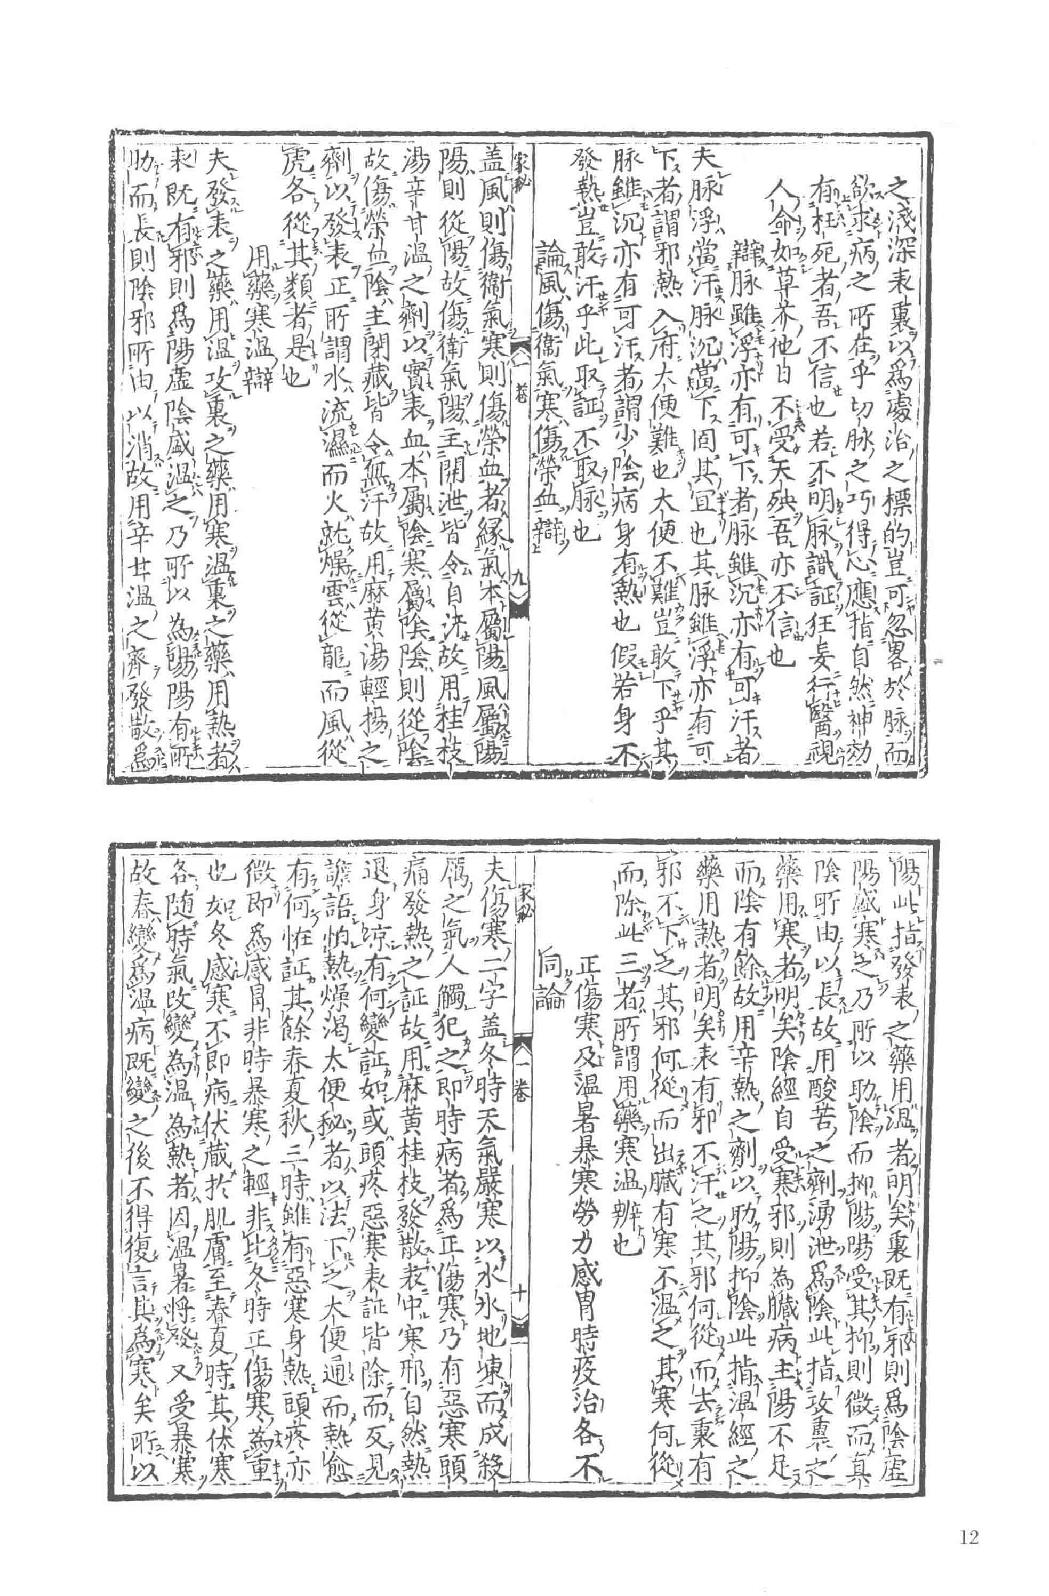 之淺深表裏以爲處治之標的豈可忽畧於脉而
欲求病之所在乎切脉之巧得心應指自然神効
有枉死者吾不信也若不明脉識証狂妄行醫視
人命如草芥他日不受天殃吾亦不信也
辯脉雖浮亦有可下者脉雖沉亦有可汗者
夫脉浮當汗脉沉當下固其宜也其脉雖浮亦有可
下者謂邪熱入府大便難也大便不難豈敢下乎其
脉雖沉亦有可汗者謂少陰病身有熱也假若身不
發熱豈敢汗乎此取証不取脉也
論風傷衞氣寒傷榮血辯
家秘
一卷
九
盖風則傷衞氣寒則傷榮血者緣氣本屬陽風屬陽
陽則從陽故傷衞氣陽主開泄皆令自汗故用桂枝
湯辛甘温之劑以實表血本屬陰寒屬陰陰則從陰
故傷榮血陰主閉藏皆令無汗故用麻黄湯輕揚之
劑以發表正所謂水流濕而火就燥雲從龍而風從
虎各從其類者是也
用藥寒温辯
夫發表之藥用温攻裏之藥用寒温裏之藥用熱者
表既有邪則爲陽虚陰盛温之乃所以為陽陽有所
助而長則陰邪所由以消故用辛甘温之齊發散爲
陽此指發表之藥用温者明矣裏既有邪則爲陰虚
陽盛寒之乃所以助陰而抑陽陽受其抑則微而真
陰所由以長故用酸苦之劑湧泄爲陰此指攻裏之
藥用寒者明矣陰經自受寒邪則為臟病主陽不足
而陰有餘故用辛熱之劑以助陽抑陰此指温經之
藥用熱者明矣表有邪不汗之其邪何從而去裏有
邪不下之其邪何從而出臟有寒不温之其寒何從
而除此三者所謂用藥寒温辨也
正傷寒及温暑暴寒勞力感冒時疫治各不
同論
家秘
一卷
十
夫傷寒二字盖冬時天氣嚴寒以水氷地凍而成殺
厲之氣人觸犯之即時病者爲正傷寒乃有惡寒頭
痛發熱之証故用麻黄桂枝發散表中寒邪自然熱
退身凉有何變証如或頭疼惡寒表証皆除而反見
譫語怕熱燥渴大便秘者以法下之大便通而熱愈
有何怪証其餘春夏秋三時雖有惡寒身熱頭疼亦
微即為感冒非時暴寒之輕非比冬時正傷寒為重
也如冬感寒不即病伏藏於肌膚至春夏時其伏寒
各随時氣改變為温為熱者因温暑將發又受暴寒
故春變爲温病既變之後不得復言其為寒矣所以
12